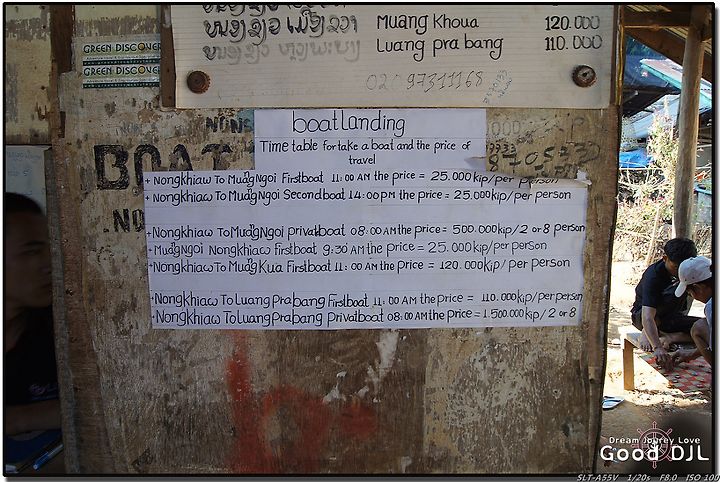 ໜອງຂຽວ ເມືອງຂວາ Muang Khoua 120.000
ໜອງຂຽວ ຫຼວງພະບາງ Luang prabang 110.000
020 97311168
GREEN DISCOVER
GREEN DISCOVER
boatlanding
Time table for take a boat and the price of
travel
BOAT
+ Nongkhiaw To MuangNgoi Firstboat 11:00 AM the price = 25.000 kip/per person
+ Nongkhiaw To MuangNgoi Secondboat 14:00 PM the price = 25.000 kip/per person
+Nongkhiaw To MuangNgoi privatboat 08:00 AM the price = 500.000 kip/2 or 8 person
+ MuangNgoi Nongkhiaw Firstboat 9:30 AM the price = 25.000 kip/per person
+ Nongkhiaw To Muang Kua Firstboat 11:00 AM the price = 120.000 kip/per person
+Nongkhiaw To Luang prabang Firstboat 11:00 AM the price = 110.000 kip/per person
+Nongkhiaw To Luang prabang privatboat 08:00 AM the price = 1.500.000 kip/2 or 8
Dream Jourey Love
Good DJL
SLT-A55V 1/20s F8.0 ISO 100